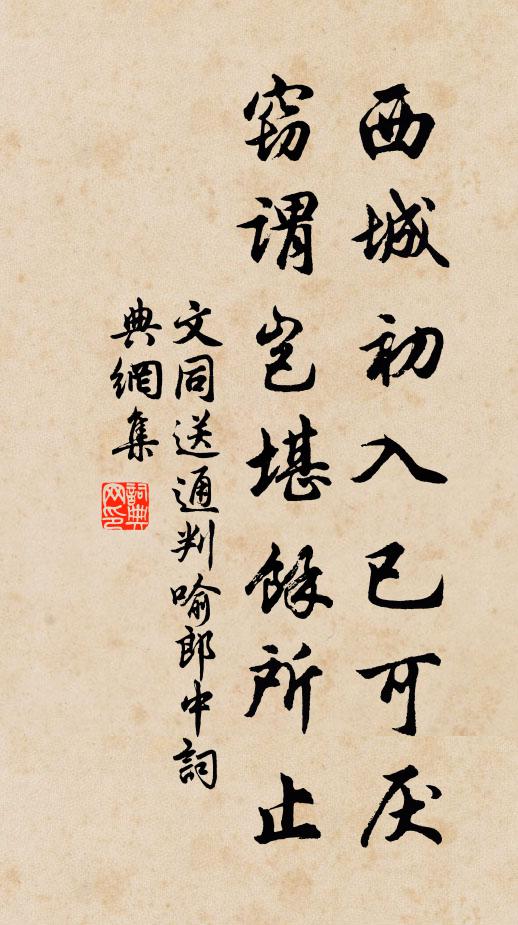 西城初入已可厌
窃謂岂堪餘所止
文同送通判喻郎中詞
典網集
詞典网印